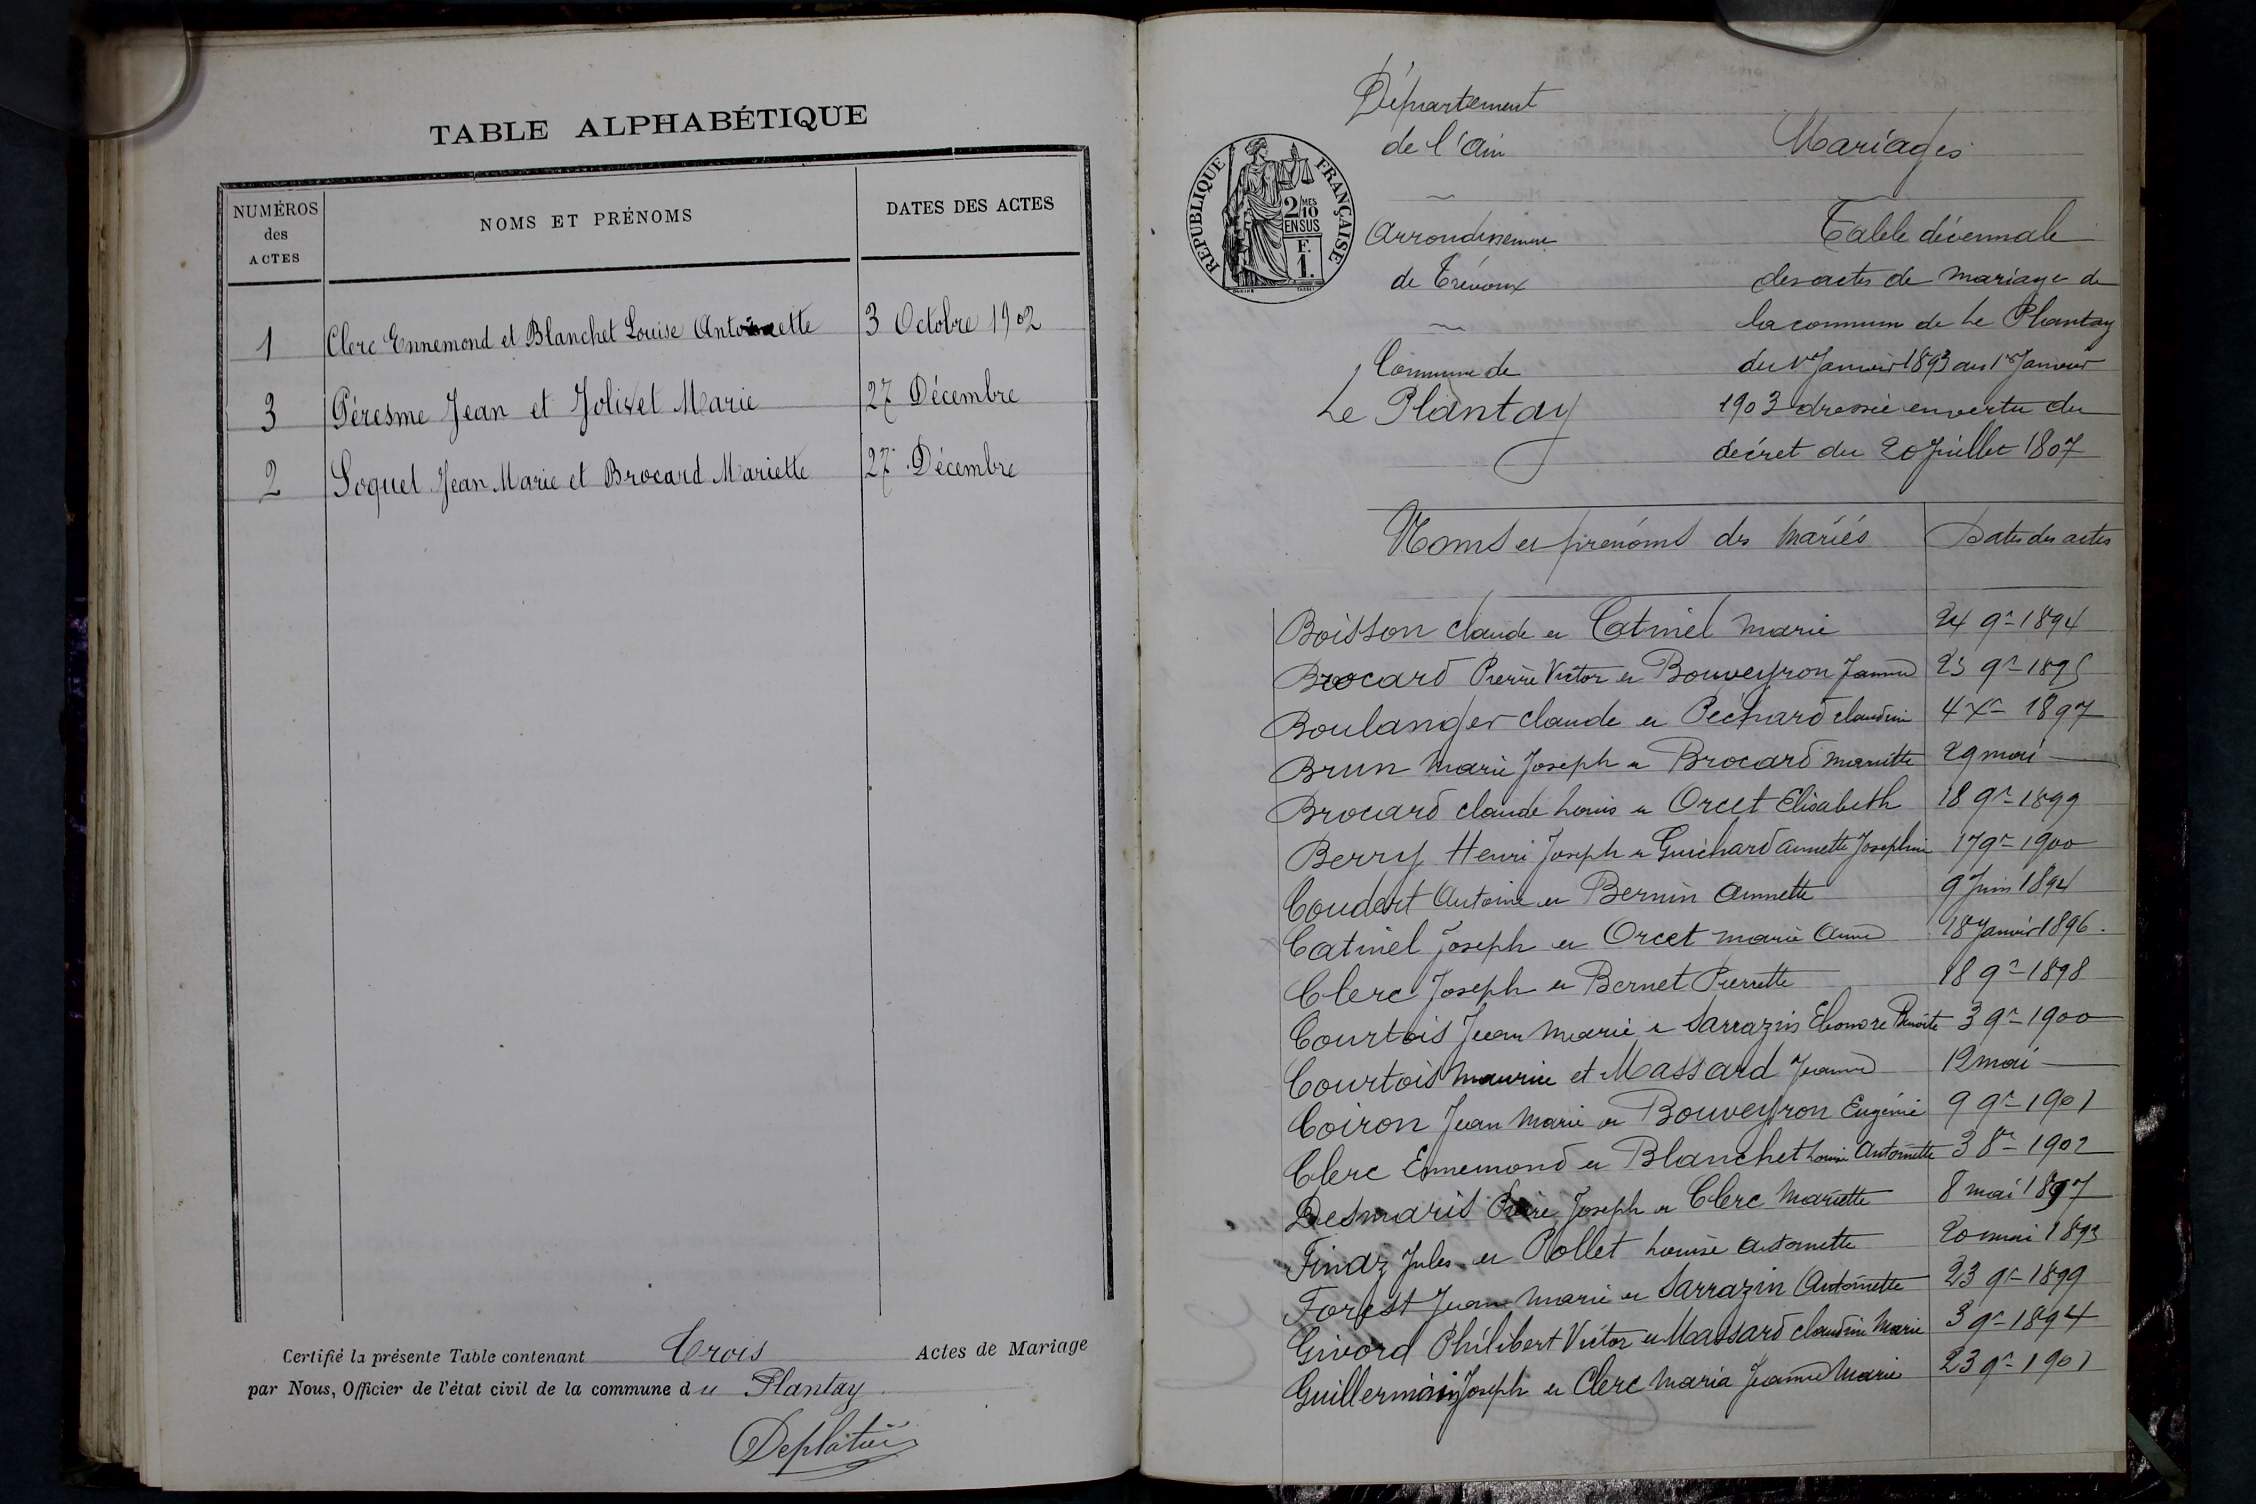 TABLE ALPHABÉTIQUE
NUMÉROS des ACTES
NOMS ET PRÉNOMS
DATES DES ACTES
1 Clerc Ennemond et Blanchet Louise Antoinette 3 Octobre 1902
3 Péresme Jean et Jolivet Marie 27 Décembre
2 Soquet Jean Marie et Brocard Mariette 27 Décembre
Certifié la présente Table contenant Trois Actes de Mariage
par Nous, Officier de l'état civil de la commune du Plantay
Département
de l'Ain
RÉPUBLIQUE FRANÇAISE
2 MES 10
EN SUS
F.
1.
Arrondissement
de Trévoux
Commune de
Le Plantay
Mariages
Table décennale
des actes de mariage de
la commune de Le Plantay
du 1er Janvier 1893 au 1er Janvier
1903 dressée en vertu du
décret du 20 Juillet 1807
Noms et prénoms des mariés Dates des actes
Boisson Claude et Catinel Marie 24 9re 1894
Brocard Pierre Victor et Bouveyron Jeanne 23 9re 1895
Boulanger Claude et Péchard Claudine 4 Xre 1897
Brun Marie Joseph et Brocard Mariette 29 mai —
Brocard Claude Louis et Orcet Elisabeth 18 9re 1899
Berry Henri Joseph et Guichard Annette Joséphine 17 9re 1900
Coudert Antoine et Bernin Annette 9 Juin 1894
Catinel Joseph et Orcet Marie Anne 18 Janvier 1896.
Clerc Joseph et Bernet Pierrette 18 9re 1898
Courtois Jean Marie et Sarrazin Eléonore Benoite 3 9re 1900
Courtois Maurice et Massard Jeanne 12 mai —
Coiron Jean Marie et Bouveyron Eugénie 9 9re 1901
Clerc Ennemond et Blanchet Louise Antoinette 3 8re 1902
Desmaris Pierre Joseph et Clerc Mariette 8 mai 1897
Finaz Jules et Rollet Louise Antoinette 20 mai 1893
Forest Jean Marie et Sarrazin Antoinette 23 9re 1899
Givord Philibert Victor et Massard Claudine Marie 3 9re 1894
Guillermin Joseph et Clerc Maria Jeanne Marie 23 9re 1901